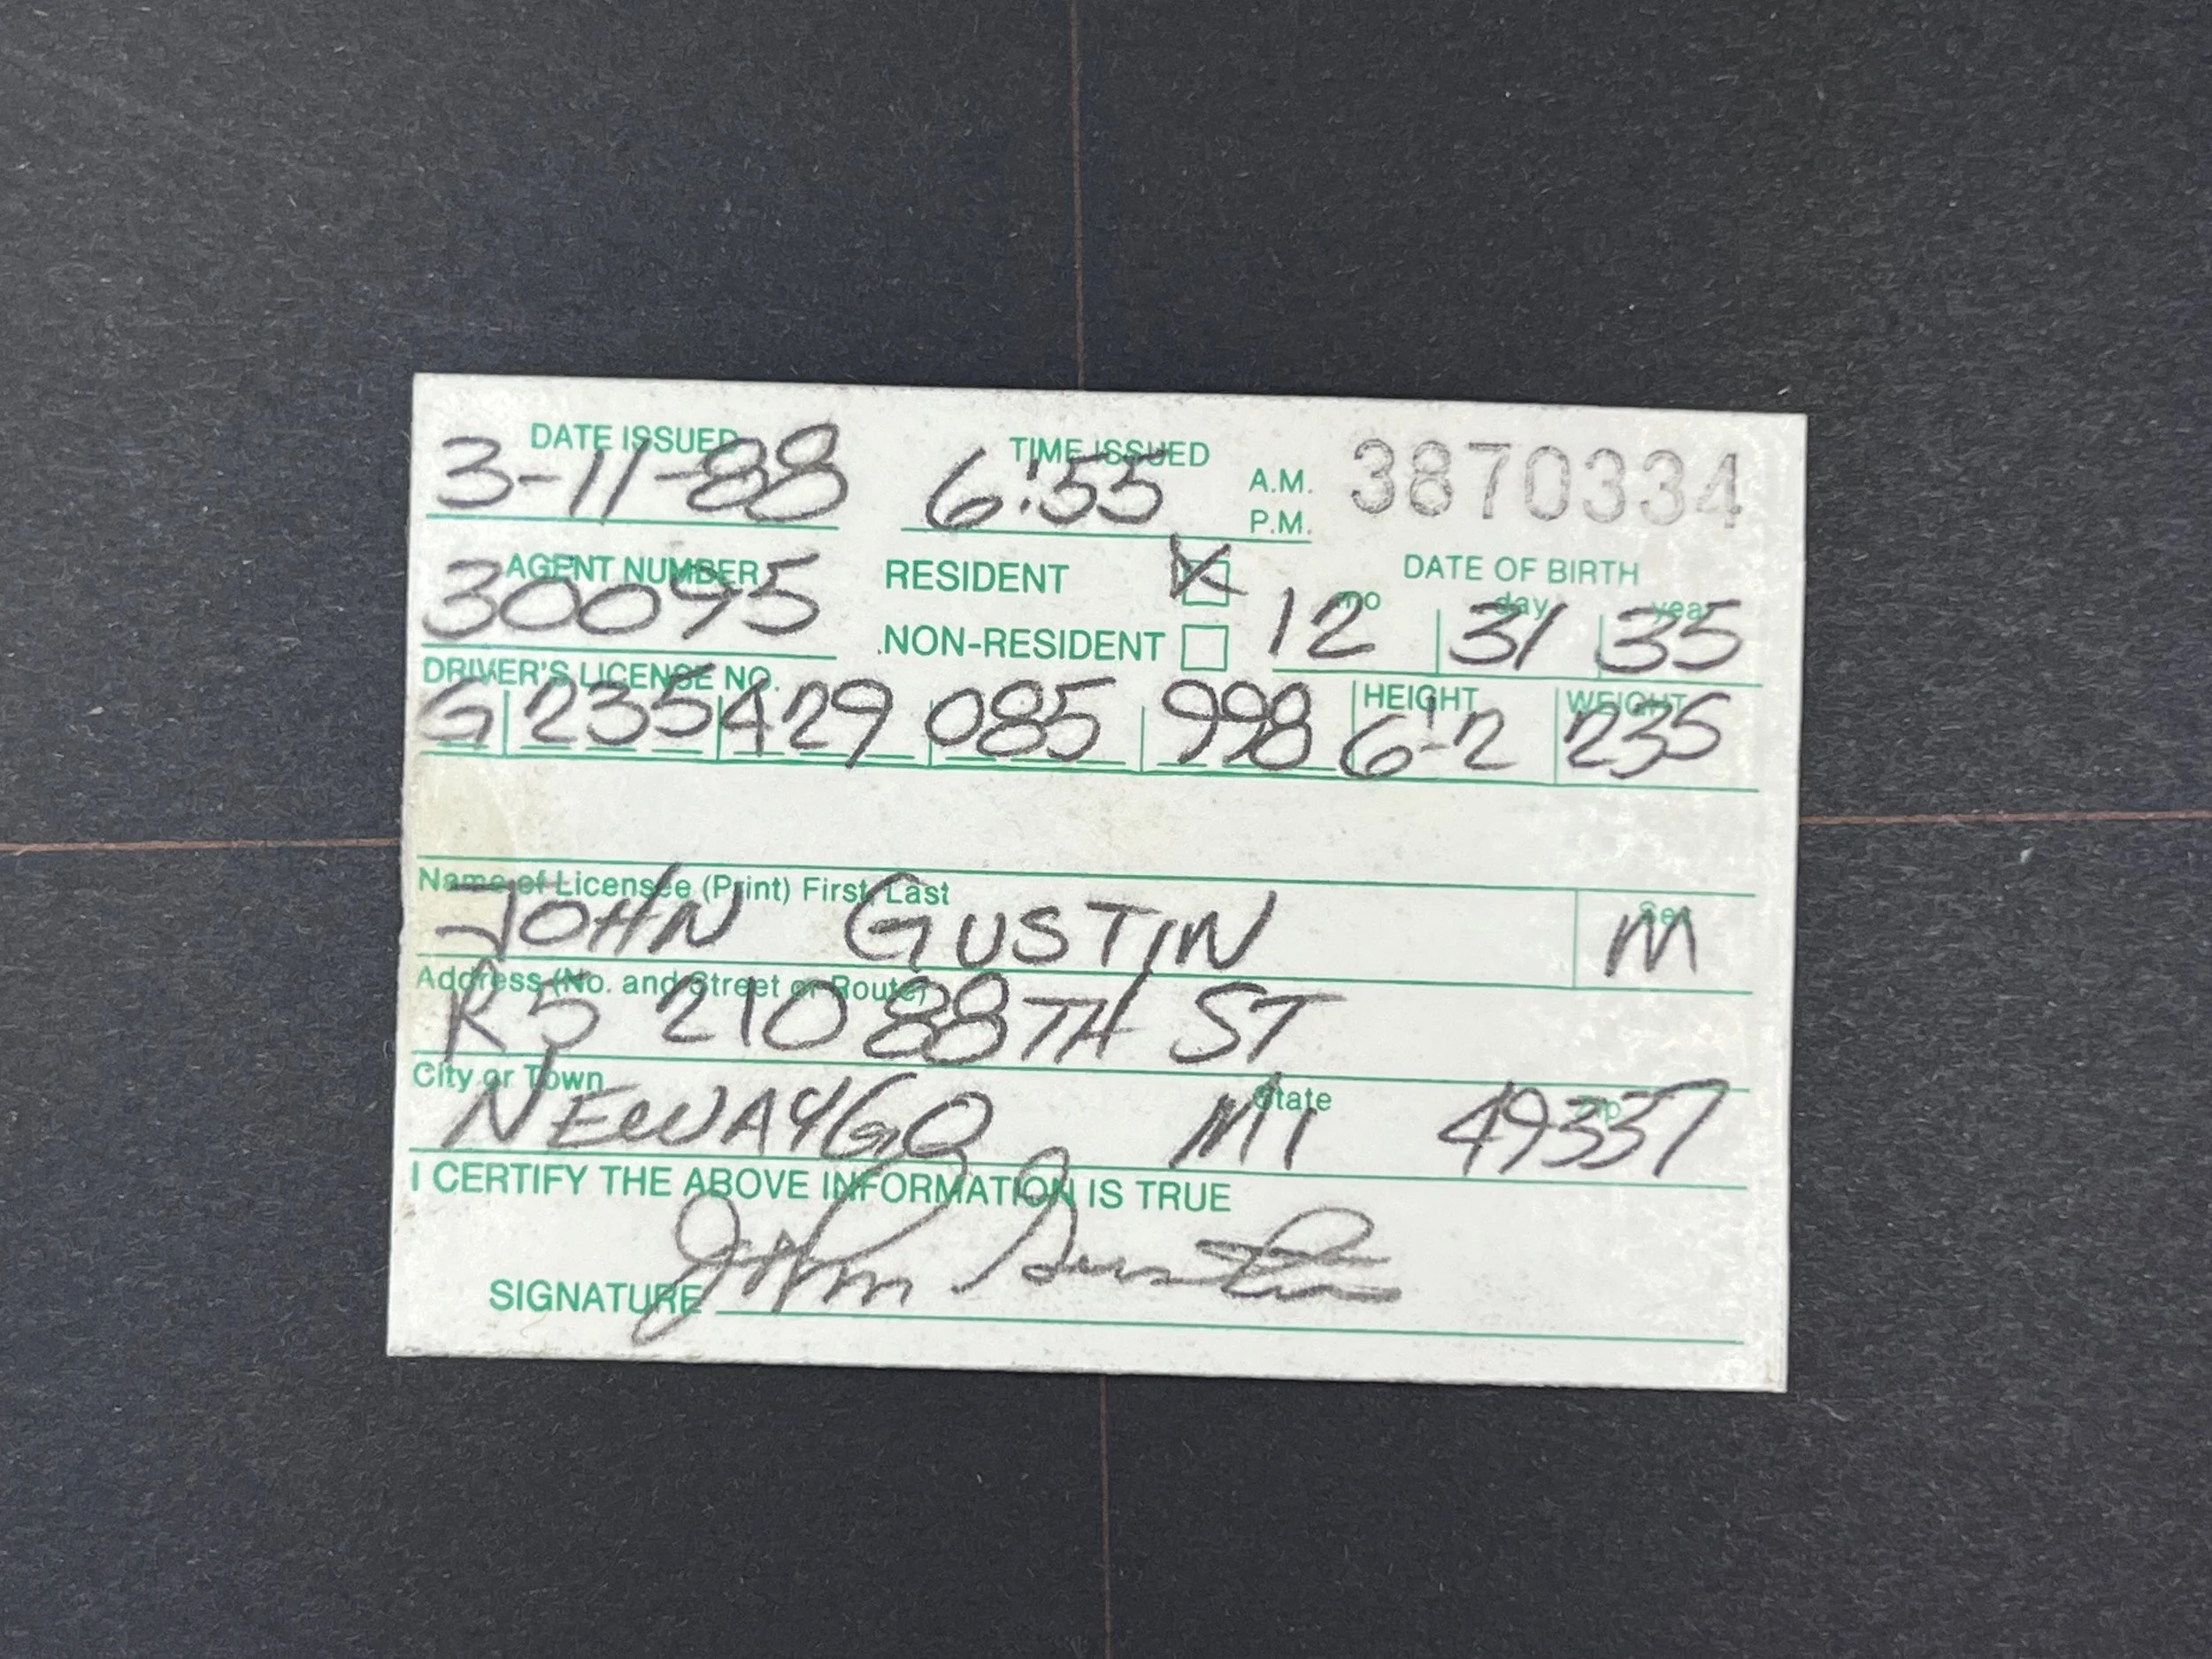 DATE ISSUED TIME ISSUED
3-11-88 6:55 A.M. P.M. 3870334
AGENT NUMBER RESIDENT DATE OF BIRTH
30095 mo day year
NON-RESIDENT 12 31 35
DRIVER'S LICENSE NO. HEIGHT WEIGHT
G 235 429 085 998 6'-2 235
Name of Licensee (Print) First, Last Sex
JOHN GUSTIN M
Address (No. and Street or Route)
R5 210 88TH ST
City or Town State Zip
NEWAYGO MI 49337
I CERTIFY THE ABOVE INFORMATION IS TRUE
SIGNATURE John Gustin